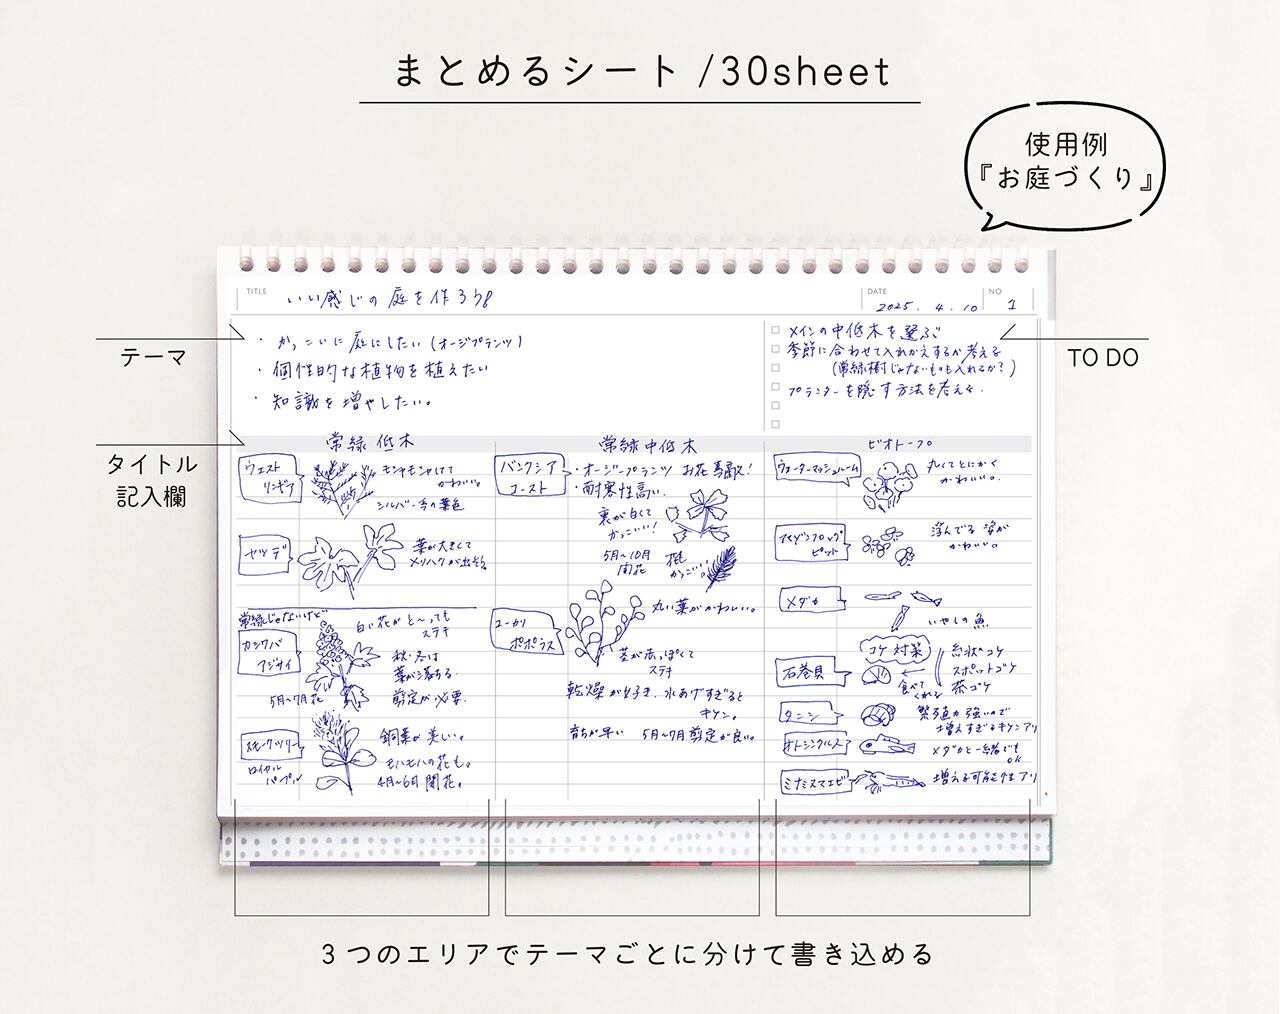 まとめるシート /30sheet
使用例
『お庭づくり』
TITLE
いい感じの庭を作ろう
DATE
2025. 4. 10
NO
1
テーマ
・かっこいい庭にしたい（オージプランツ）
・個性的な植物を植えたい
・知識を増やしたい。
TO DO
メインの中低木を選ぶ
季節に合わせて入れかえするか考える
（常緑樹じゃないものも入れるか？）
プランターを隠す方法を考える.
タイトル
記入欄
常緑 低木
ウエスト
リンギア
モシャモシャしてて
かわいい。
シルバー系の葉色
ヤツデ
葉が大きくて
メリハリが出る
常緑じゃないけど
カシワバ
アジサイ
白い花がと〜っても
ステキ
秋・冬は
葉が落ちる
剪定が必要.
5月〜7月花
スモークツリー
ロイヤル
パープル
銅葉が美しい。
モハモハの花も。
4月〜6月 開花。
常緑中低木
バンクシア
コースト
・オージープランツ お花素敵！
・耐寒性高い.
裏が白くて
かっこいい！
5月〜10月
開花
かっこいい
ユーカリ
ポポラス
丸い葉がかわいい。
茎が赤っぽくて
ステキ
乾燥が好き. 水あげすぎると
キケン。
育ちが早い 5月〜7月剪定が良い。
ビオトープ
ウォーターマッシュルーム
丸くてとにかく
かわいい。
アマゾンフロッグ
ピット
浮んでる姿が
かわいい。
メダカ
いやしの魚
コケ対策
石巻貝
食べて
くれる
糸状のコケ
スポットゴケ
茶ゴケ
タニシ
繁殖力強いので
増えすぎるキケンアリ
オトシンクルス
メダカと一緒でも
OK
ミナミヌマエビ
増える可能性アリ
3つのエリアでテーマごとに分けて書き込める